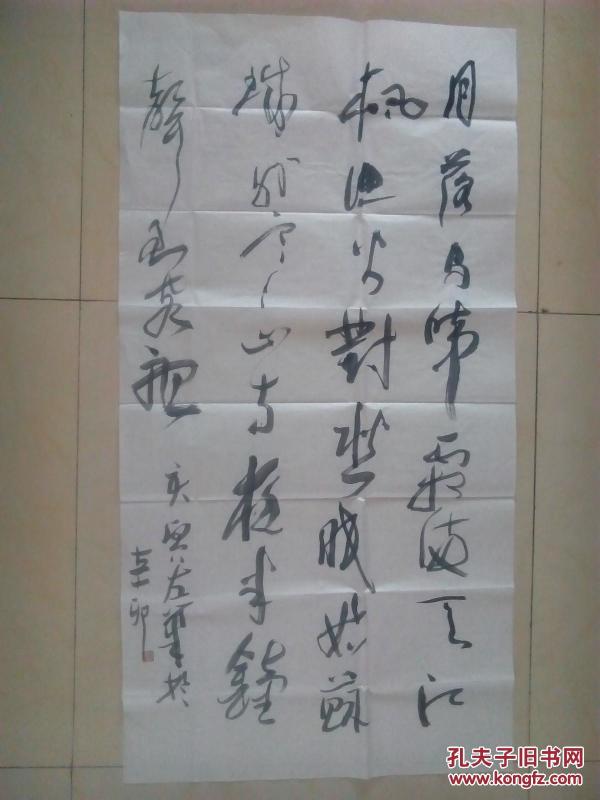 月落乌啼霜滿天江
枫渔火對愁眠姑蘇
城外寒山寺夜半鐘
聲到客船
左筆於
辛卯
孔夫子旧书网
www.kongfz.com